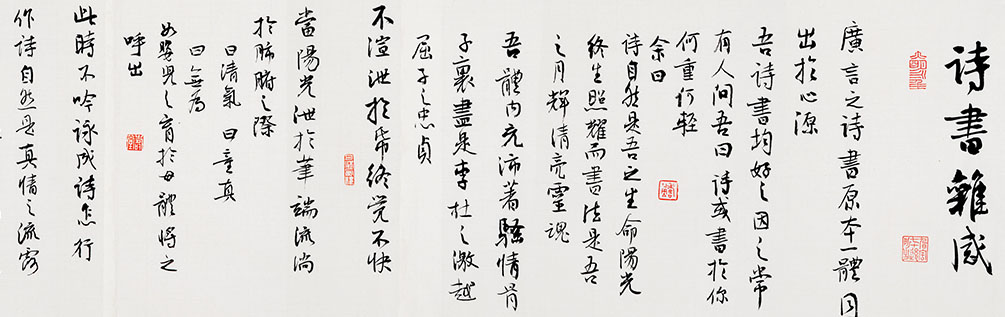 詩書雜感
廣言之詩書原本一體同
出於心源
吾詩書均好之因之常
有人问吾曰詩或書於你
何重何轻
余曰
诗自然是吾之生命陽光
终生照耀而書法是吾
之月輝清亮靈魂
吾體内充沛著騷情骨
子裏盡是李杜之激越
屈子之忠貞
不渲泄於常终觉不快
當陽光泄於筆端流淌
於肺腑之際
曰清氣曰童真
曰無為
如嬰兒之育於母體將之
呼出
此時不吟詠成詩怎行
作詩自然是真情之流露